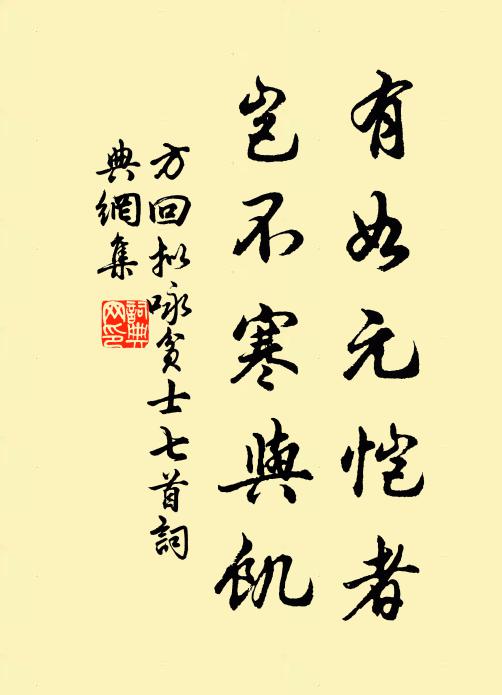 有如元恺者
岂不寒與飢
方回拟咏贫士七首詞
典網集
詞典
网印